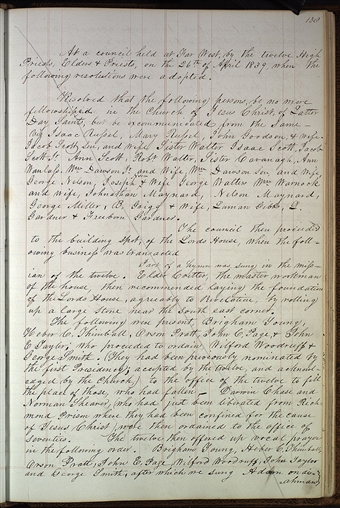 130
At a council held at Far West, by the twelve High
Priests, Elders & Priests, on the 26th of April 1839, when the
following resolutions were adopted.
Resolved that the following persons, be no more
fellowshiped in the Church of Jesus Christ, of Latter
Day Saints, but be excommunicated from the same.
Viz Isaac Russel, Mary Russel, John Goodson & wife
Jacob Scott Sen, and wife, Sister Walter, Isaac Scott, Jacob
Scott Jr. Ann Scott, Robt Walter, Sister Cavanagh, Ann
Wanlass, Wm Dawson Jr. and wife, Wm Dawson Sen and wife,
George Nelson, Joseph & wife George Walters Wm Warnock
and wife, Johnathan Maynard, Nelson Maynard,
George Miller, & wife, Laman Gibbs, L.
Gardner & Freeborn Gardner.
The council then proceeded
to the building spot, of the Lords House, when the foll-
owing business was transacted
Part of a hymn was sung, in the miss-
ion of the twelve. Elder Cutler, the master workman
of the house, then recommenced laying the foundation
of the Lords House, agreably to Revelation, by rolling
up a large stone near the South east corner.
The following were present, Brigham Young,
Heber C. Kimball, Orson Pratt, John E. Page, & John
E Taylor; who proceeded to ordain Wilford Woodruff &
George Smith. (They had been previously nominated by
the first Presidency, accepted by the twelve, and acknowl-
edged by the Church,) to the office of the twelve to fill
the place of those, who had fallen. Darwin Chase and
Norman Shearer, who had just been liberated from Rich-
mond Prison where they had been confined for the cause
of Jesus Christ, were then ordained to the office of
Seventies. The twelve then offered up vocal prayer
in the following order. Brigham Young, Heber C, Kimball,
Orson Pratt, John E. Page, Wilford Woodruff, John Taylor
and George Smith, after which we sung Adam ondi
ahman